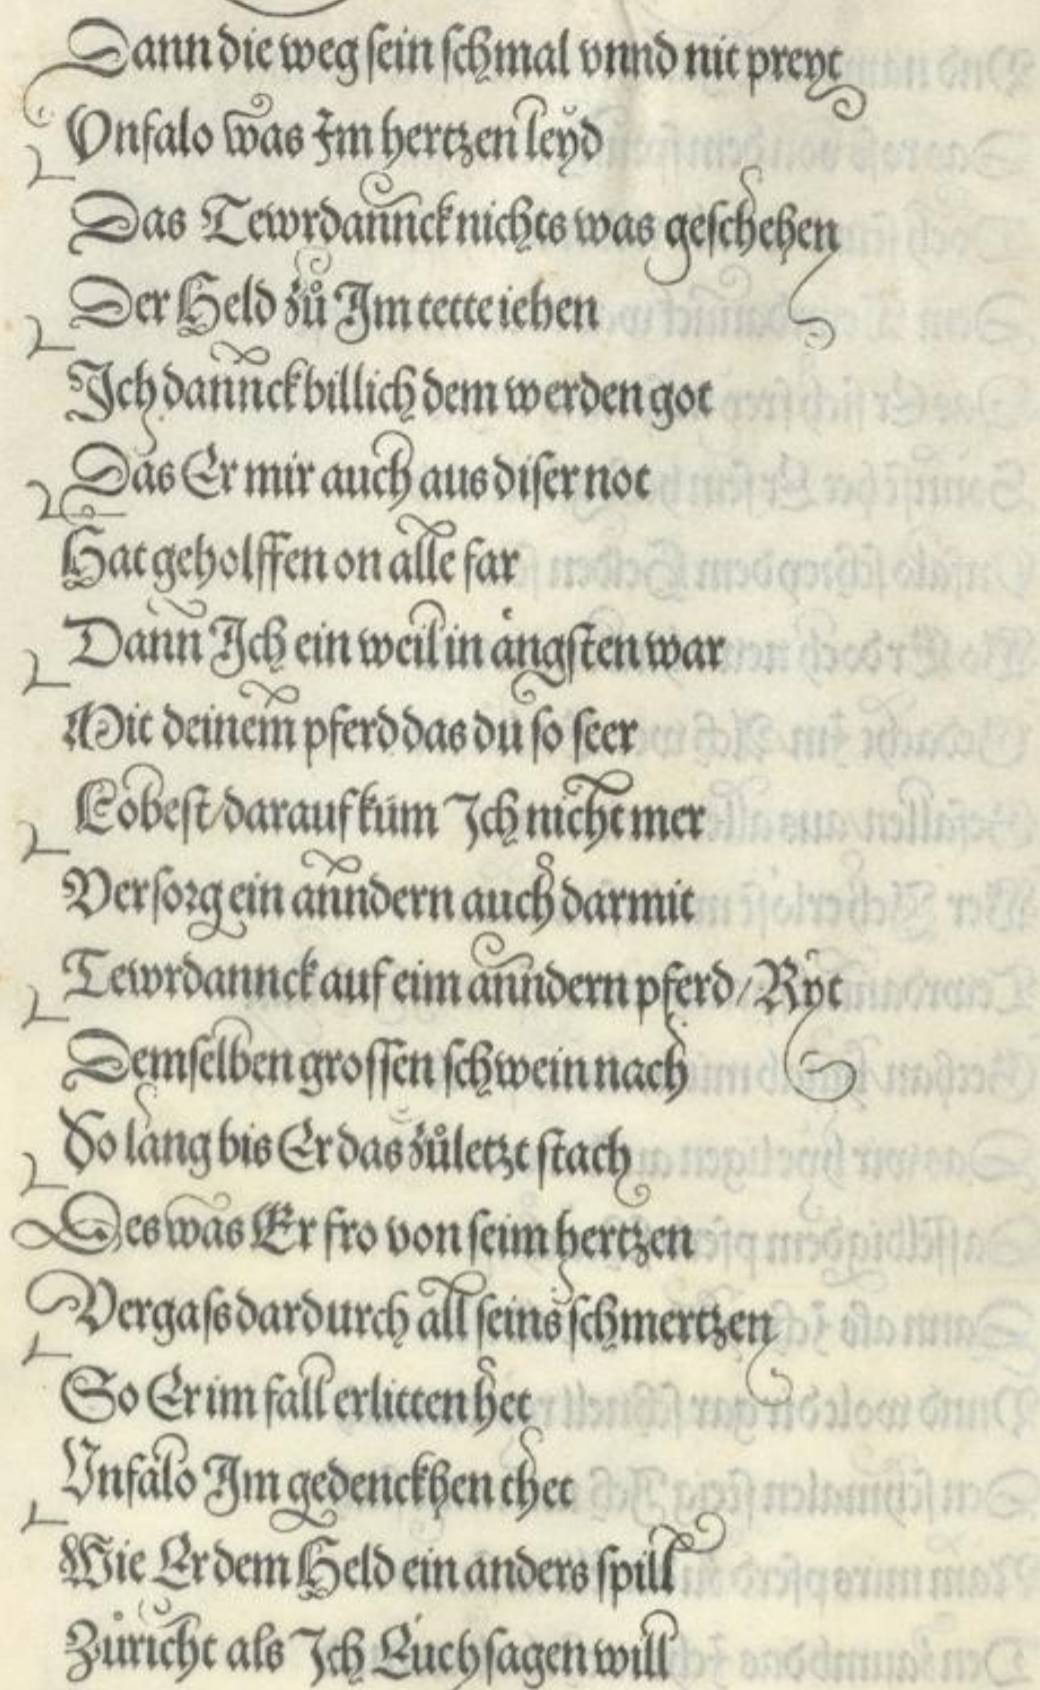 Dann die weg sein schmal vnnd nit preyt
Vnfalo was Im hertzen leyd
Das Tewrdannck nichts was geschehen
Der Held zů Im tette iehen
Ich dannck billich dem werden got
Das Er mir auch aus diser not
Hat geholffen on alle far
Dann Ich ein weil in ångsten war
Mit deinem pferd das du so seer
Lobest / darauf kum Ich nicht mer
Versorg ein anndern auch darmit
Tewrdannck auf eim anndern pferd / Ryt
Demselben grossen schwein nach
So lang bis Er das zůletzt stach
Des was Er fro von seim hertzen
Vergass dardurch all seins schmertzen
So Er im fall erlitten het
Vnfalo Im gedenckhen thet
Wie Er dem Held ein anders spill
Zůricht als Ich Euch sagen will